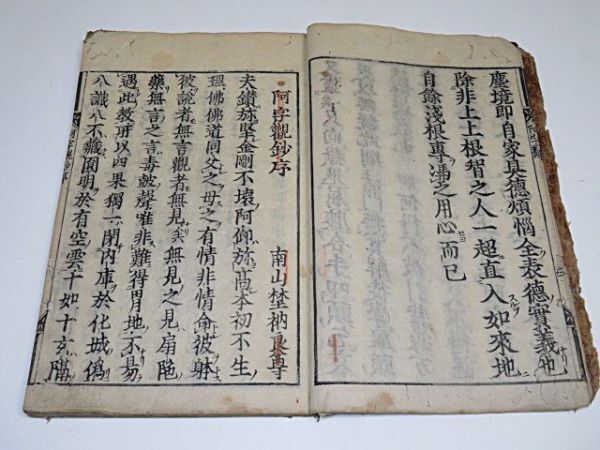 塵境即自家具德煩惱全表德實義也
除非上上根智之人一超直入如來地
自餘淺根專沸之用心而已
阿字觀鈔序
南山埜衲良尊
夫鑽旀堅金剛不壞阿仰旀高本初不生
理佛佛道同父之母之有情非情命彼躰
彼説者無言觀者無見矣無見之見扇陁
藥無言之言毒皷聲唯非難得胃地不易
遇此教所以四果獨一閉内庫於化城僞
八識八不藏圓明於有空雲千如十玄隔